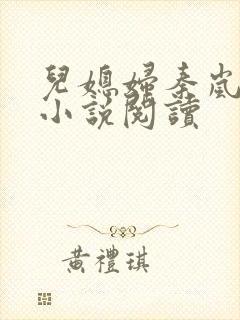 兒媳婦秦嵐
小說閱讀
黃禮琪